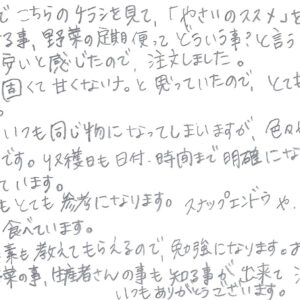 で こちらのチラシを見て、「やさいのススメ」を
る事、野菜の定期便って どういう事?と言う
安いと感じたので、注文しました。
固くて甘くないナ。と思っていたので、とても
。
いつも同じ物になってしまいますが、色々
です。収穫日も日付・時間まで明確にな
ています。
もとても参考になります。スナップエンドウや、
食べています。
菜も教えてもらえるので、勉強になります。お
野菜の事、生産者さんの事も知る事が出来て
いつもありがとうございます。